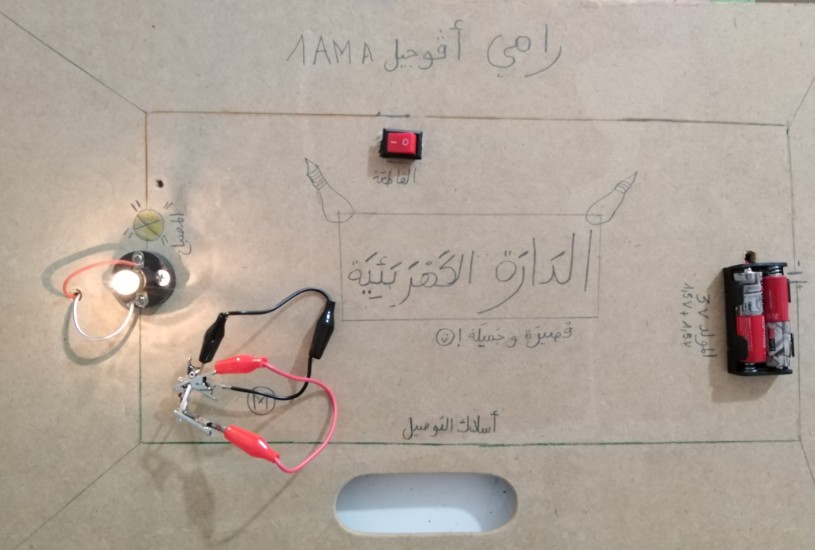 رامي أڨوجيل 1AMA
القاطعة
المصباح
الدارة الكَهْرَبَئِيَة
قصيرة و جميلة !
المولد 3V
1,5V + 1,5V
M
أسلاك التوصيل